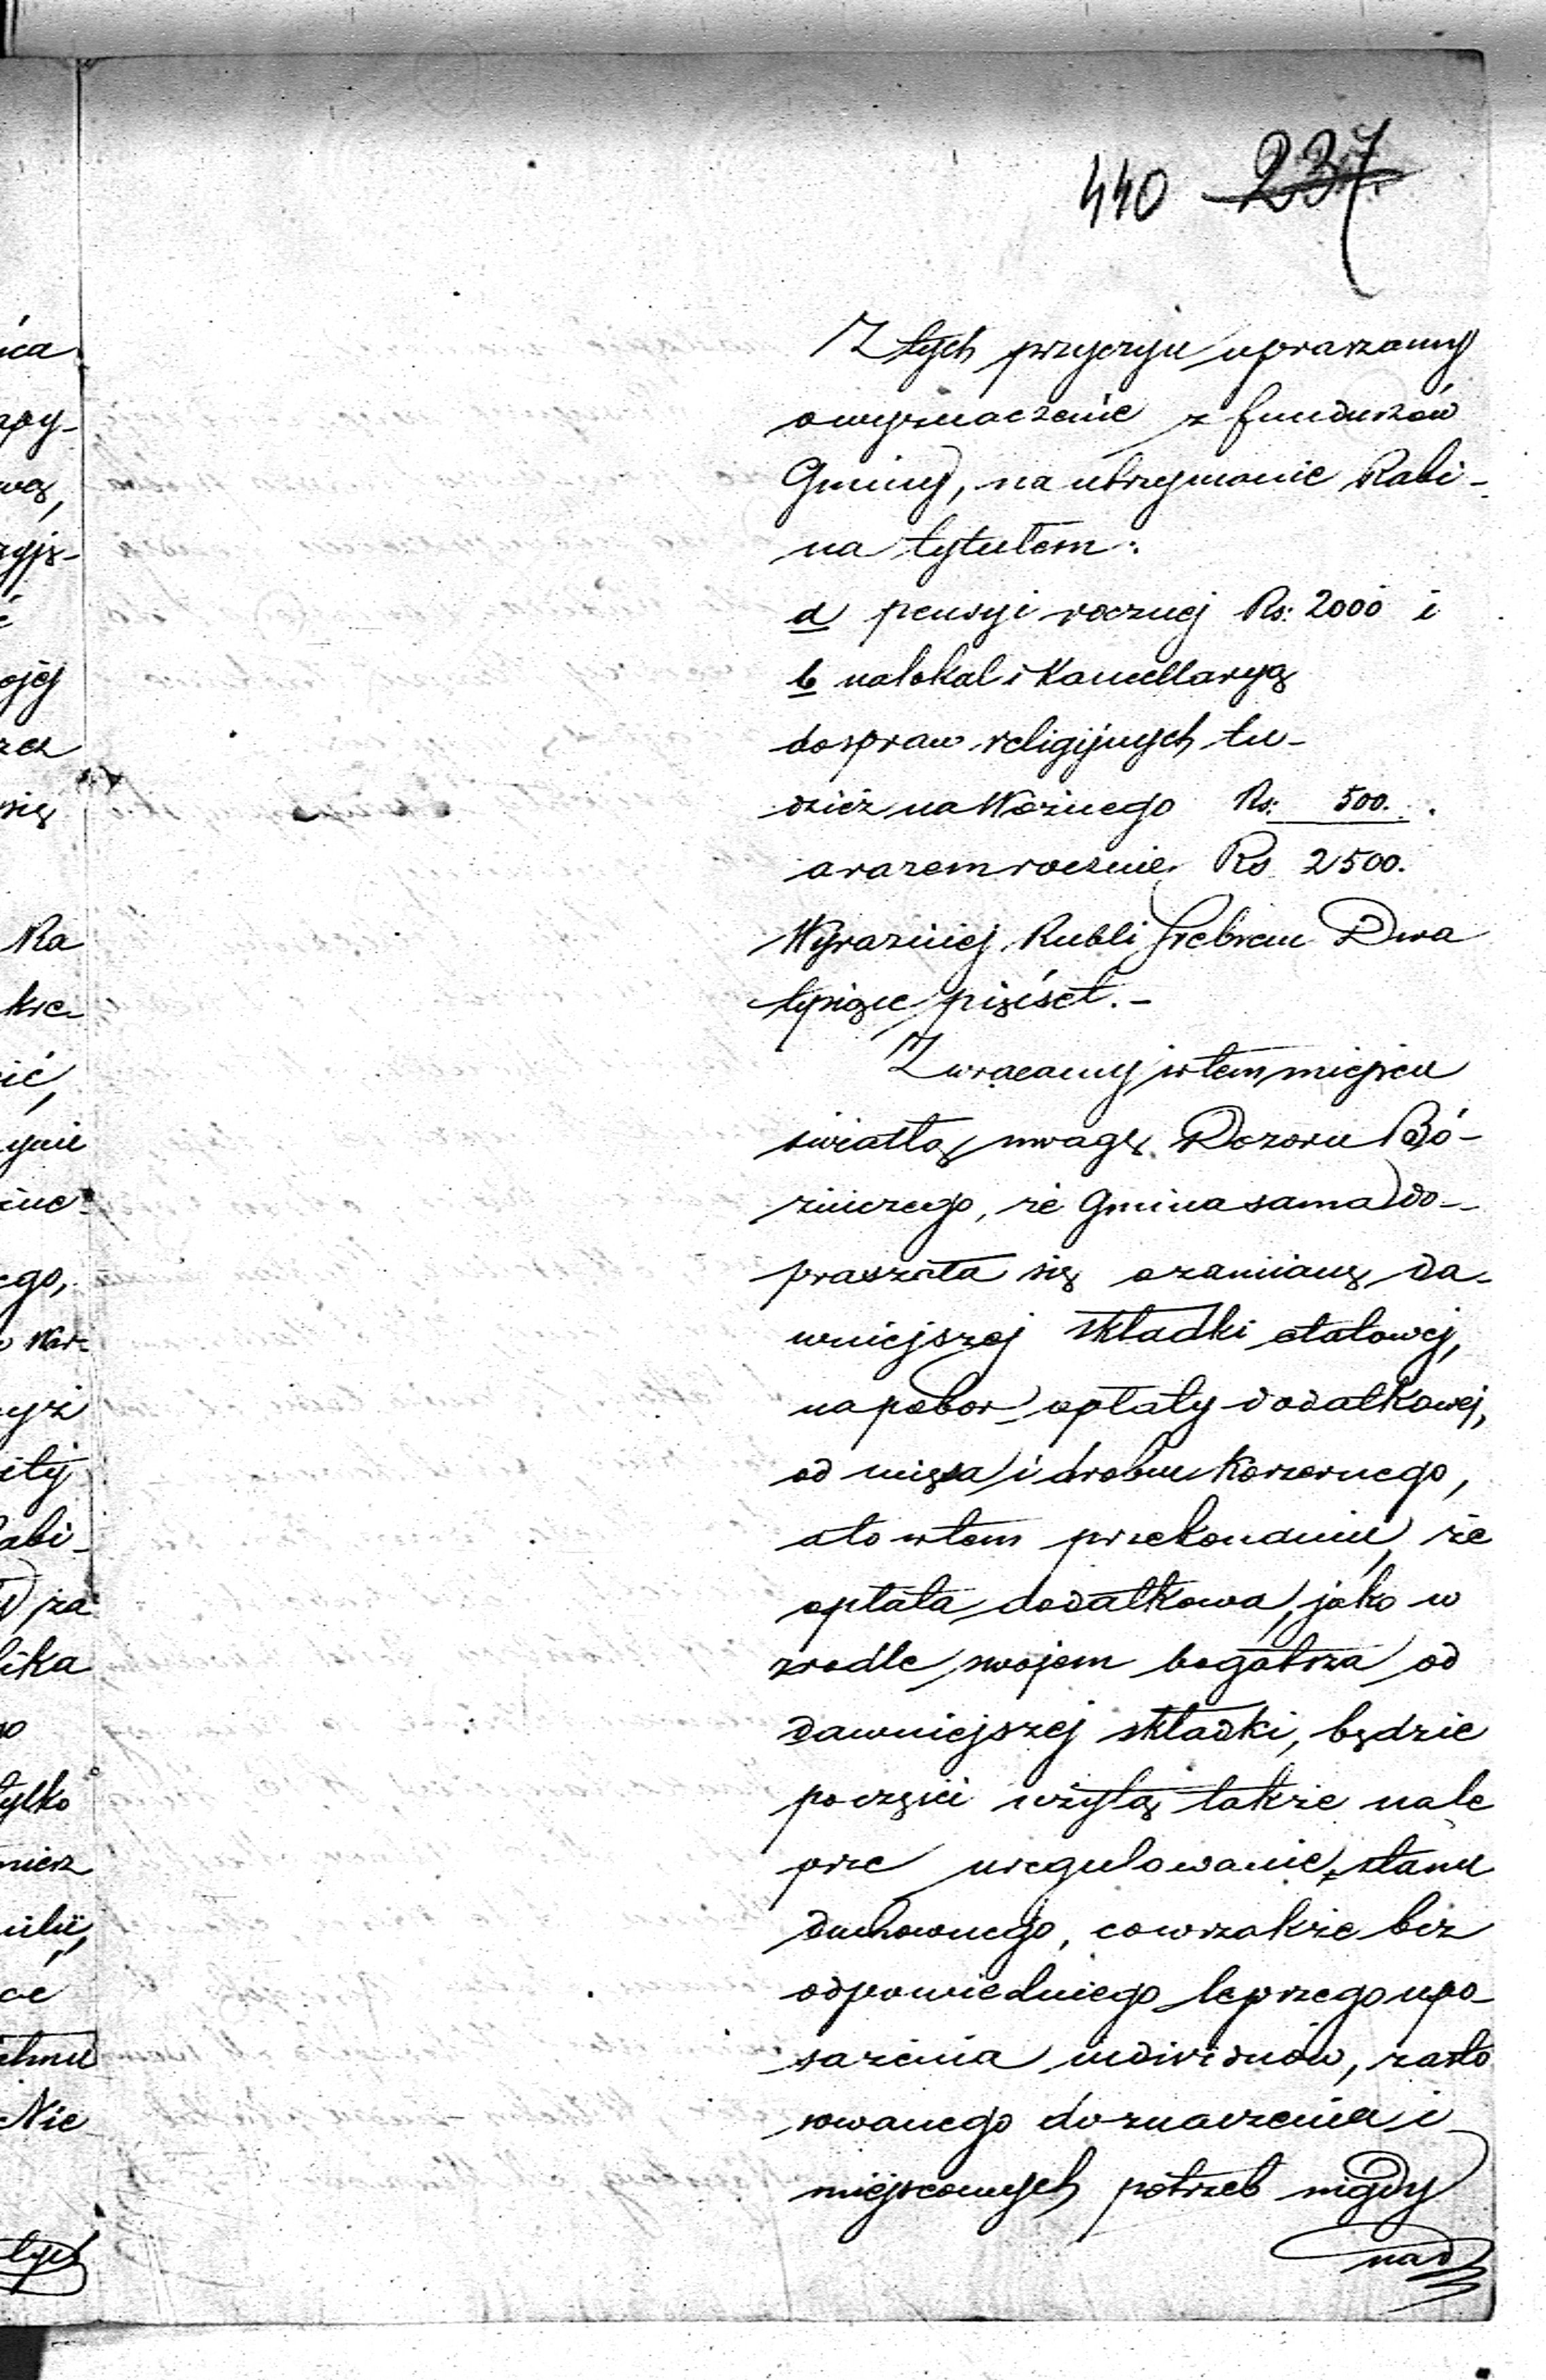 440 237
Z tych przyczyn upraszamy
o wyznaczenie z funduszów
Gminy, na utrzymanie Rabi-
na tytułem:
a pensyi rocznej Rs: 2000 i
b na lokal i Kancellaryą
do spraw religijnych tu-
dzież na Woźnego Rs: 500.
a razem rocznie Rs 2500.
Wyraźniej Rubli Srebrem Dwa
tysiące pięćset.-
Zwracamy w tem miejscu
światłą uwagę Dozoru Bó-
żniczego, że Gmina sama do-
praszała się o zamianę da-
wniejszej składki etatowej,
na pobor opłaty dodatkowej,
od mięsa i drobiu koszernego,
a to w tem przekonaniu, że
opłata dodatkowa, jako w
zrodle swojem bogatsza od
dawniejszej składki, będzie
po części użytą także na le
psze uregulowanie stanu
duchownego, co wszakże bez
odpowiedniego lepszego upo-
sażenia individuów, zasto
sowanego do znaczenia i
miejscowych potrzeb nigdy
nad
ńca
wą,
ojej
rzez
się
Ra
kre-
ić,
ego,
War-
abi-
za
lika
tylko
Nie
tych